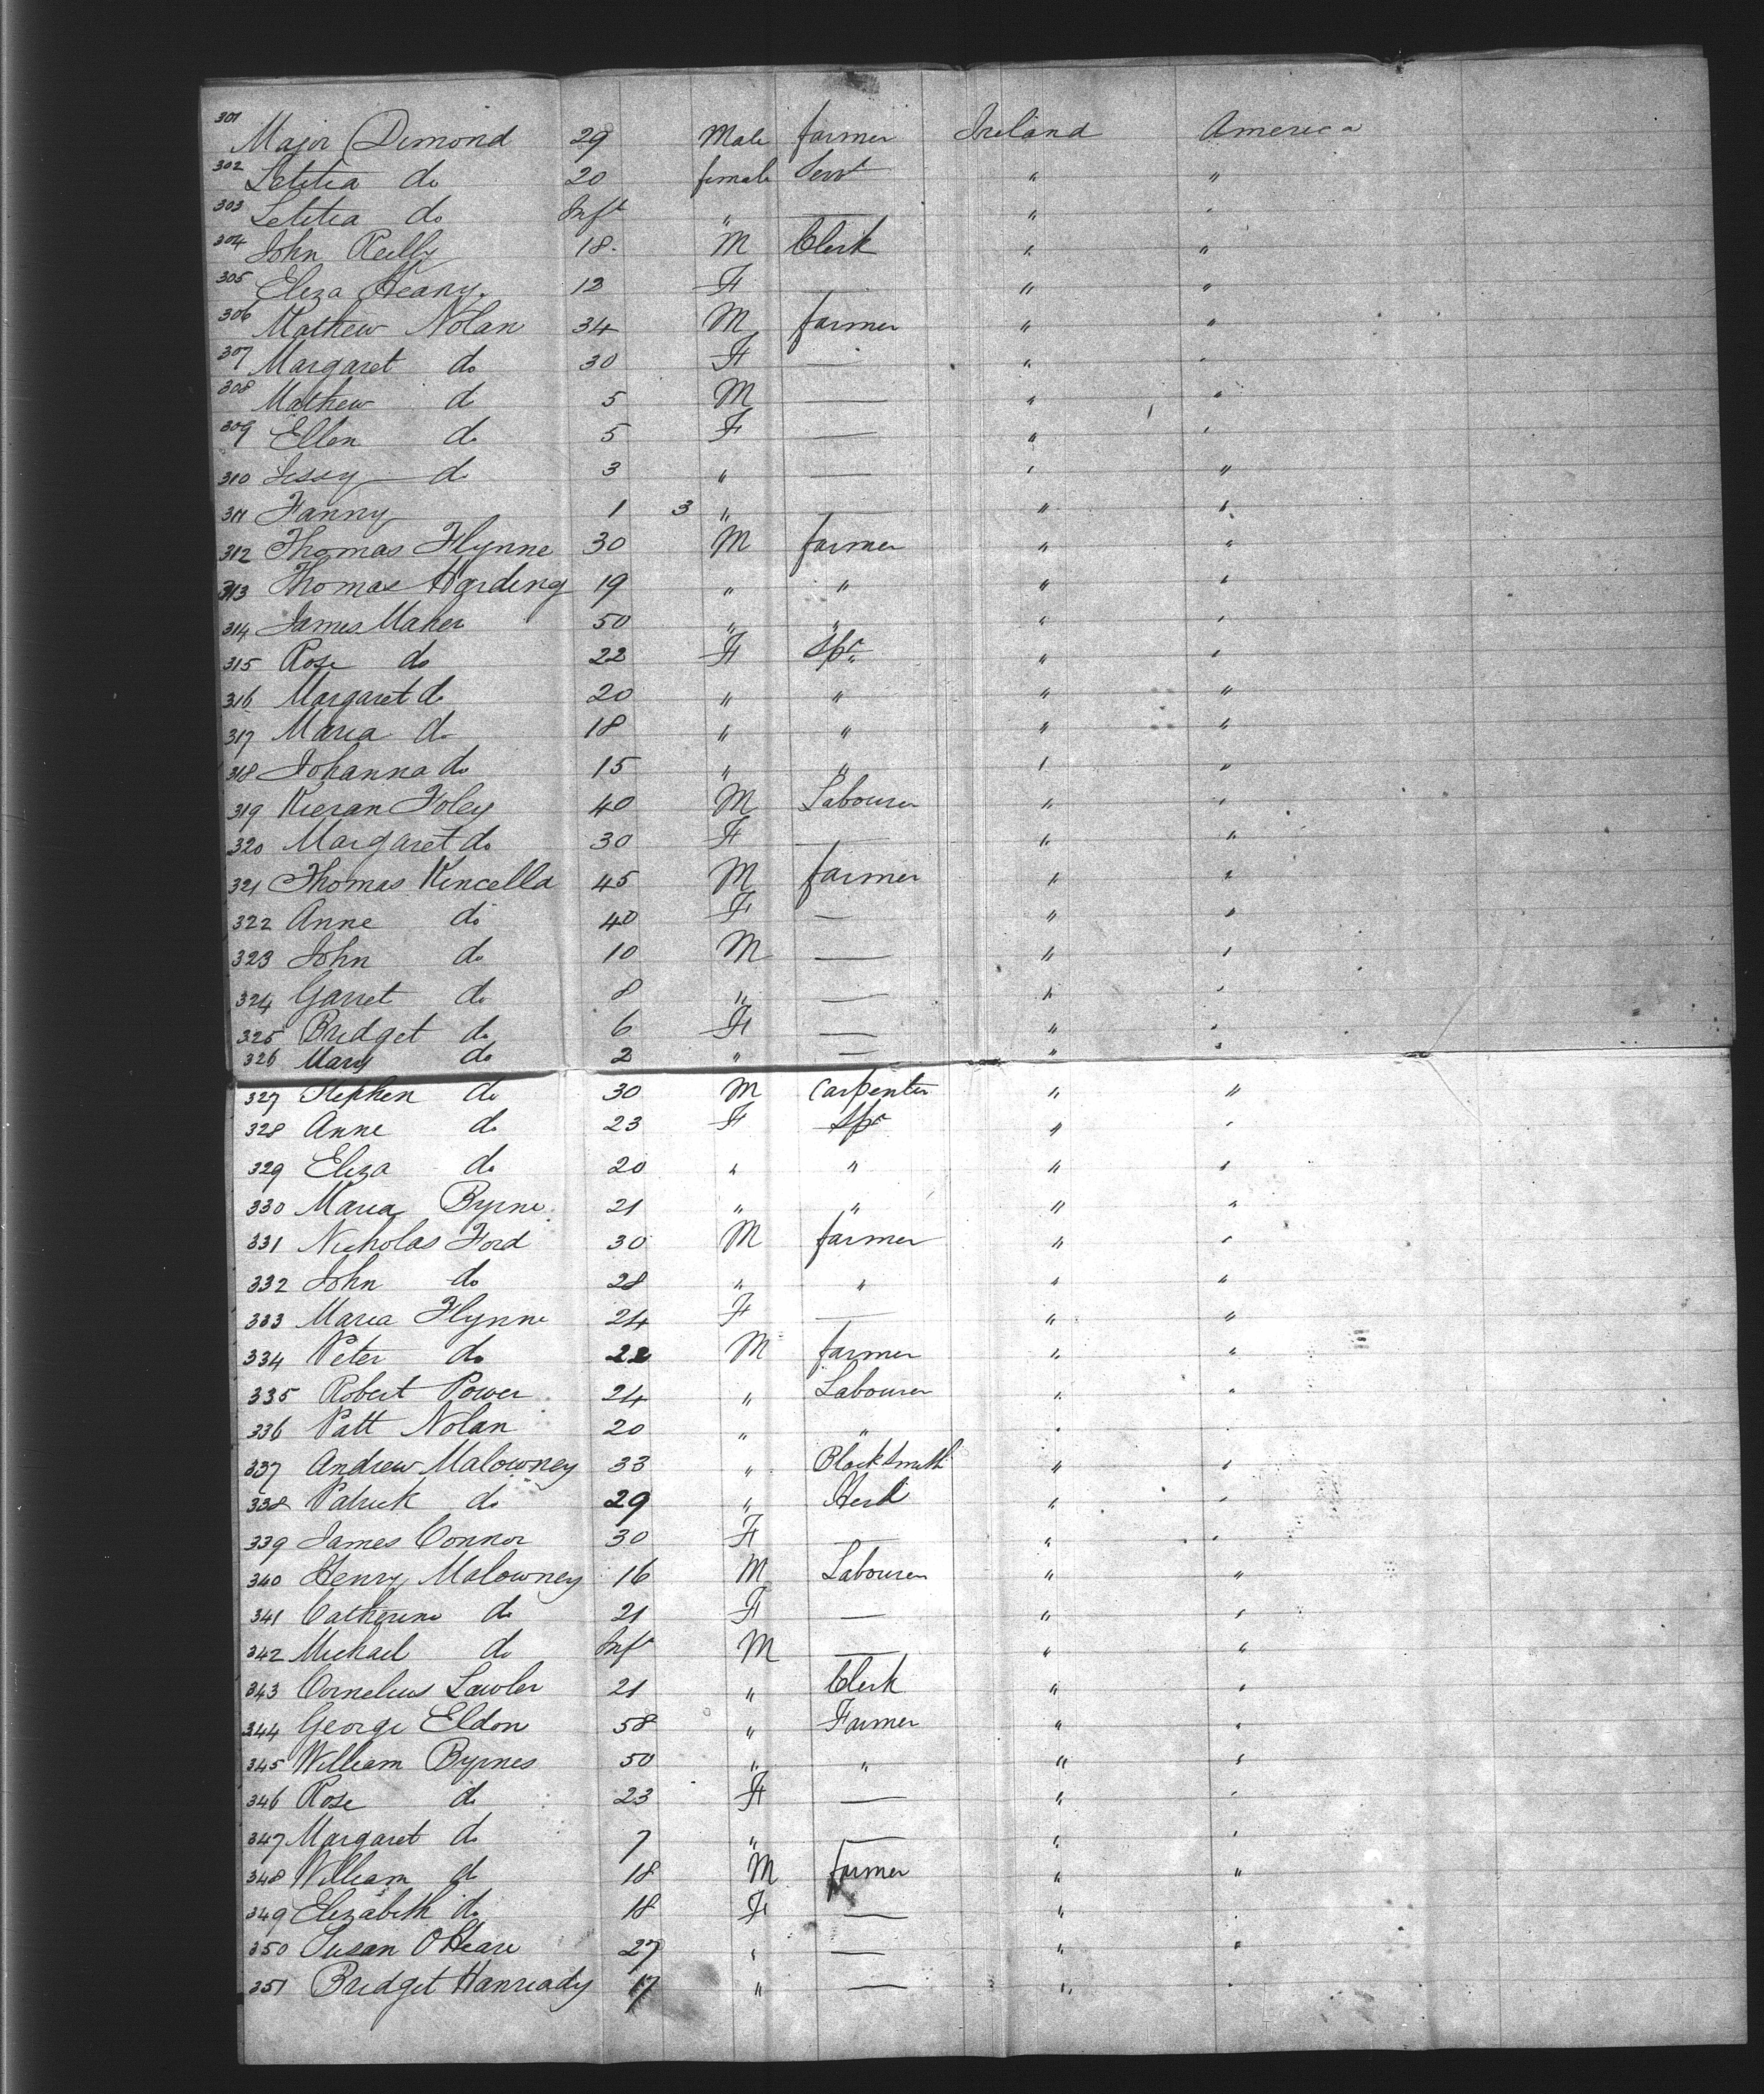 301 Major Dimond 29 Male farmer Ireland America
302 Letitia do 20 female Servt " "
303 Letitia do Inft " — " "
304 John Reilly 18 M Clerk " "
305 Eliza Heany 12 F — " "
306 Mathew Nolan 34 M farmer " "
307 Margaret do 30 F — " "
308 Mathew do 5 M — " "
309 Ellen do 5 F — " "
310 do 3 " — " "
311 Fanny 1 3 " — " "
312 Thomas Flynne 30 M farmer " "
313 Thomas Harding 19 " " " "
314 James Maher 50 " " " "
315 Rose do 22 F Spr " "
316 Margaret do 20 " " " "
317 Maria do 18 " " " "
318 Johanna do 15 " " " "
319 Kieran Foley 40 M Labourer " "
320 Margaret do 30 F — " "
321 Thomas Kincella 45 M farmer " "
322 Anne do 40 F — " "
323 John do 10 M — " "
324 Garret do 8 " — " "
325 Bridget do 6 F — " "
326 Mary do 2 " — " "
327 Stephen do 30 M Carpenter " "
328 Anne do 23 F Spr " "
329 Eliza do 20 " " " "
330 Maria Byrne 21 " " " "
331 Nicholas Ford 30 M farmer " "
332 John do 28 " " " "
333 Maria Flynne 24 F — " "
334 Peter do 22 M farmer " "
335 Robert Power 24 " Labourer " "
336 Patt Nolan 20 " " " "
337 Andrew Malowney 33 " Blacksmith " "
338 Patrick do 29 " Herd " "
339 James Connor 30 F — " "
340 Henry Malowney 16 M Labourer " "
341 Catherine do 21 F — " "
342 Michael do Inft M — " "
343 Cornelius Lawler 21 " Clerk " "
344 George Eldon 58 " Farmer " "
345 William Byrnes 50 " " " "
346 Rose do 23 F — " "
347 Margaret do 7 " — " "
348 William do 18 M farmer " "
349 Elizabeth do 18 F — " "
350 Susan O'Heare 27 " — " "
351 Bridget Hanready 17 " — " "